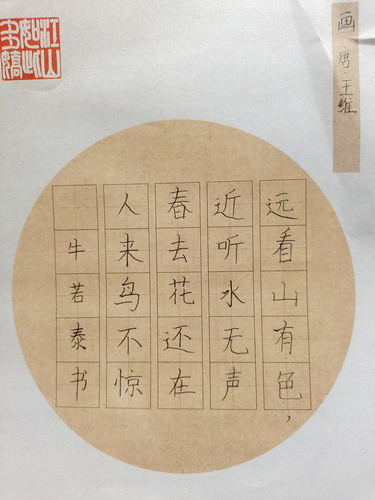 画 唐:王维
远看山有色，
近听水无声
春去花还在
人来鸟不惊
牛若泰书
江山如此多娇